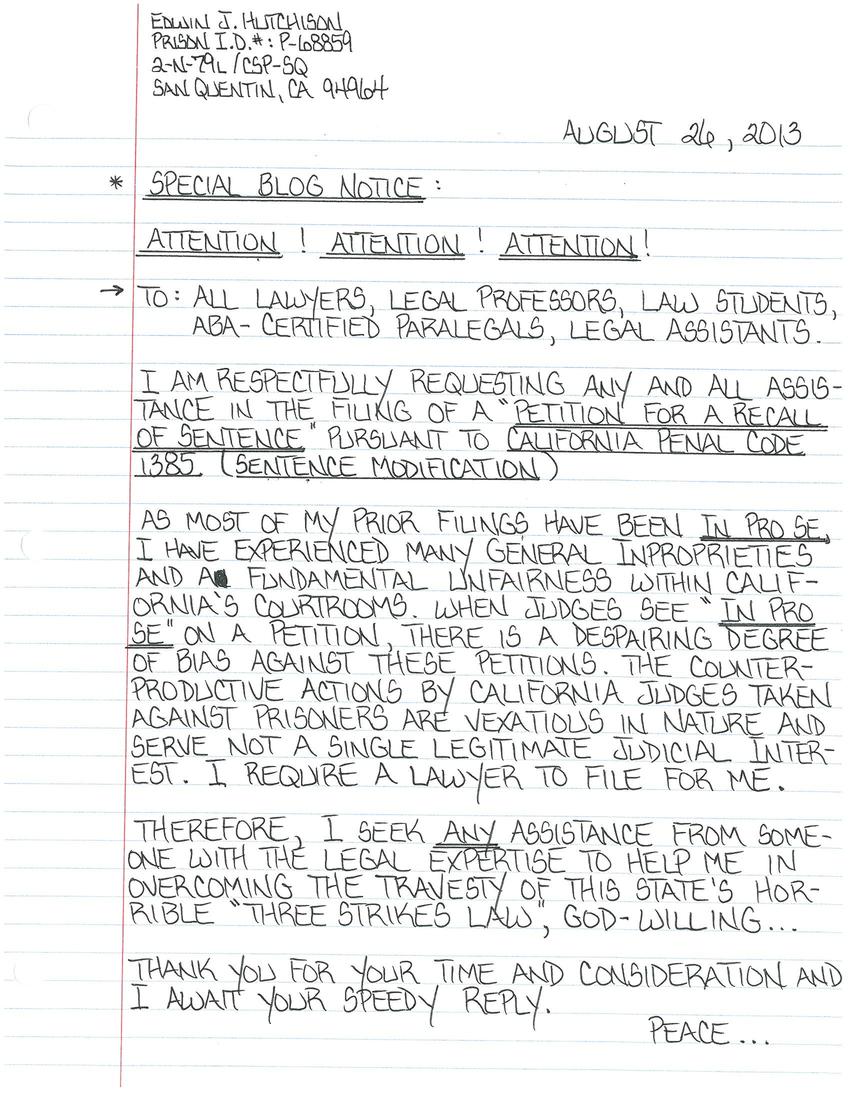 EDWIN J. HUTCHISON
PRISON I.D.#: P-68859
2-N-79L/CSP-SQ
SAN QUENTIN, CA 94964
AUGUST 26, 2013
* SPECIAL BLOG NOTICE:
ATTENTION! ATTENTION! ATTENTION!
→ TO: ALL LAWYERS, LEGAL PROFESSORS, LAW STUDENTS,
ABA-CERTIFIED PARALEGALS, LEGAL ASSISTANTS.
I AM RESPECTFULLY REQUESTING ANY AND ALL ASSIS-
TANCE IN THE FILING OF A "PETITION FOR A RECALL
OF SENTENCE" PURSUANT TO CALIFORNIA PENAL CODE
1385. (SENTENCE MODIFICATION)
AS MOST OF MY PRIOR FILINGS HAVE BEEN IN PRO SE,
I HAVE EXPERIENCED MANY GENERAL INPROPRIETIES
AND A FUNDAMENTAL UNFAIRNESS WITHIN CALIF-
ORNIA'S COURTROOMS. WHEN JUDGES SEE "IN PRO
SE" ON A PETITION, THERE IS A DESPAIRING DEGREE
OF BIAS AGAINST THESE PETITIONS. THE COUNTER-
PRODUCTIVE ACTIONS BY CALIFORNIA JUDGES TAKEN
AGAINST PRISONERS ARE VEXATIOUS IN NATURE AND
SERVE NOT A SINGLE LEGITIMATE JUDICIAL INTER-
EST. I REQUIRE A LAWYER TO FILE FOR ME.
THEREFORE, I SEEK ANY ASSISTANCE FROM SOME-
ONE WITH THE LEGAL EXPERTISE TO HELP ME IN
OVERCOMING THE TRAVESTY OF THIS STATE'S HOR-
RIBLE "THREE STRIKES LAW", GOD-WILLING...
THANK YOU FOR YOUR TIME AND CONSIDERATION AND
I AWAIT YOUR SPEEDY REPLY.
PEACE...